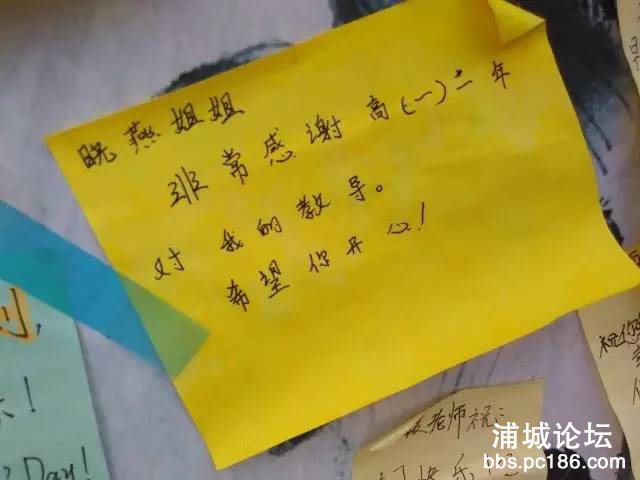 晓燕姐姐
非常感谢高(一)二年
对我的教导。
希望你开心!
!
Day!
祝您
老师祝:
快乐
浦城论坛
bbs.pc186.com